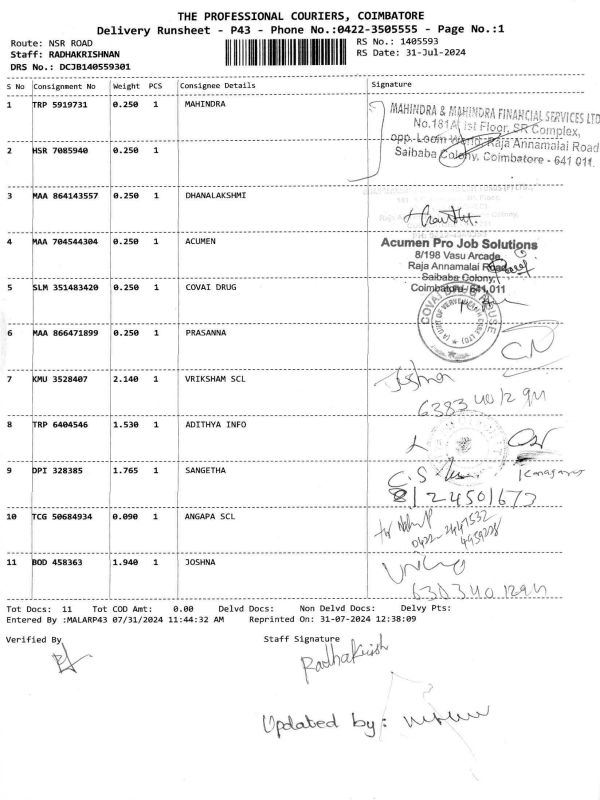 THE PROFESSIONAL COURIERS, COIMBATORE
Delivery Runsheet - P43 - Phone No.:0422-3505555 - Page No.:1
Route: NSR ROAD RS No.: 1405593
Staff: RADHAKRISHNAN RS Date: 31-Jul-2024
DRS No.: DCJB140559301
S No Consignment No Weight PCS Consignee Details Signature
1 TRP 5919731 0.250 1 MAHINDRA
MAHINDRA & MAHINDRA FINANCIAL SERVICES LTD
No.181A Ist Floor, SR Complex,
opp. Loom World, Raja Annamalai Road
Saibaba Colony, Coimbatore - 641 011.
2 HSR 7085940 0.250 1
3 MAA 864143557 0.250 1 DHANALAKSHMI
4 MAA 704544304 0.250 1 ACUMEN
Acumen Pro Job Solutions
8/198 Vasu Arcade,
Raja Annamalai Road
Saibaba Colony,
Coimbatore - 641 011
5 SLM 351483420 0.250 1 COVAI DRUG
6 MAA 866471899 0.250 1 PRASANNA
7 KMU 3528407 2.140 1 VRIKSHAM SCL
8 TRP 6404546 1.530 1 ADITHYA INFO
9 DPI 328385 1.765 1 SANGETHA
10 TCG 50684934 0.090 1 ANGAPA SCL
11 BOD 458363 1.940 1 JOSHNA
Tot Docs: 11 Tot COD Amt: 0.00 Delvd Docs: Non Delvd Docs: Delvy Pts:
Entered By :MALARP43 07/31/2024 11:44:32 AM Reprinted On: 31-07-2024 12:38:09
Verified By Staff Signature
Radhakrish
Updated by: